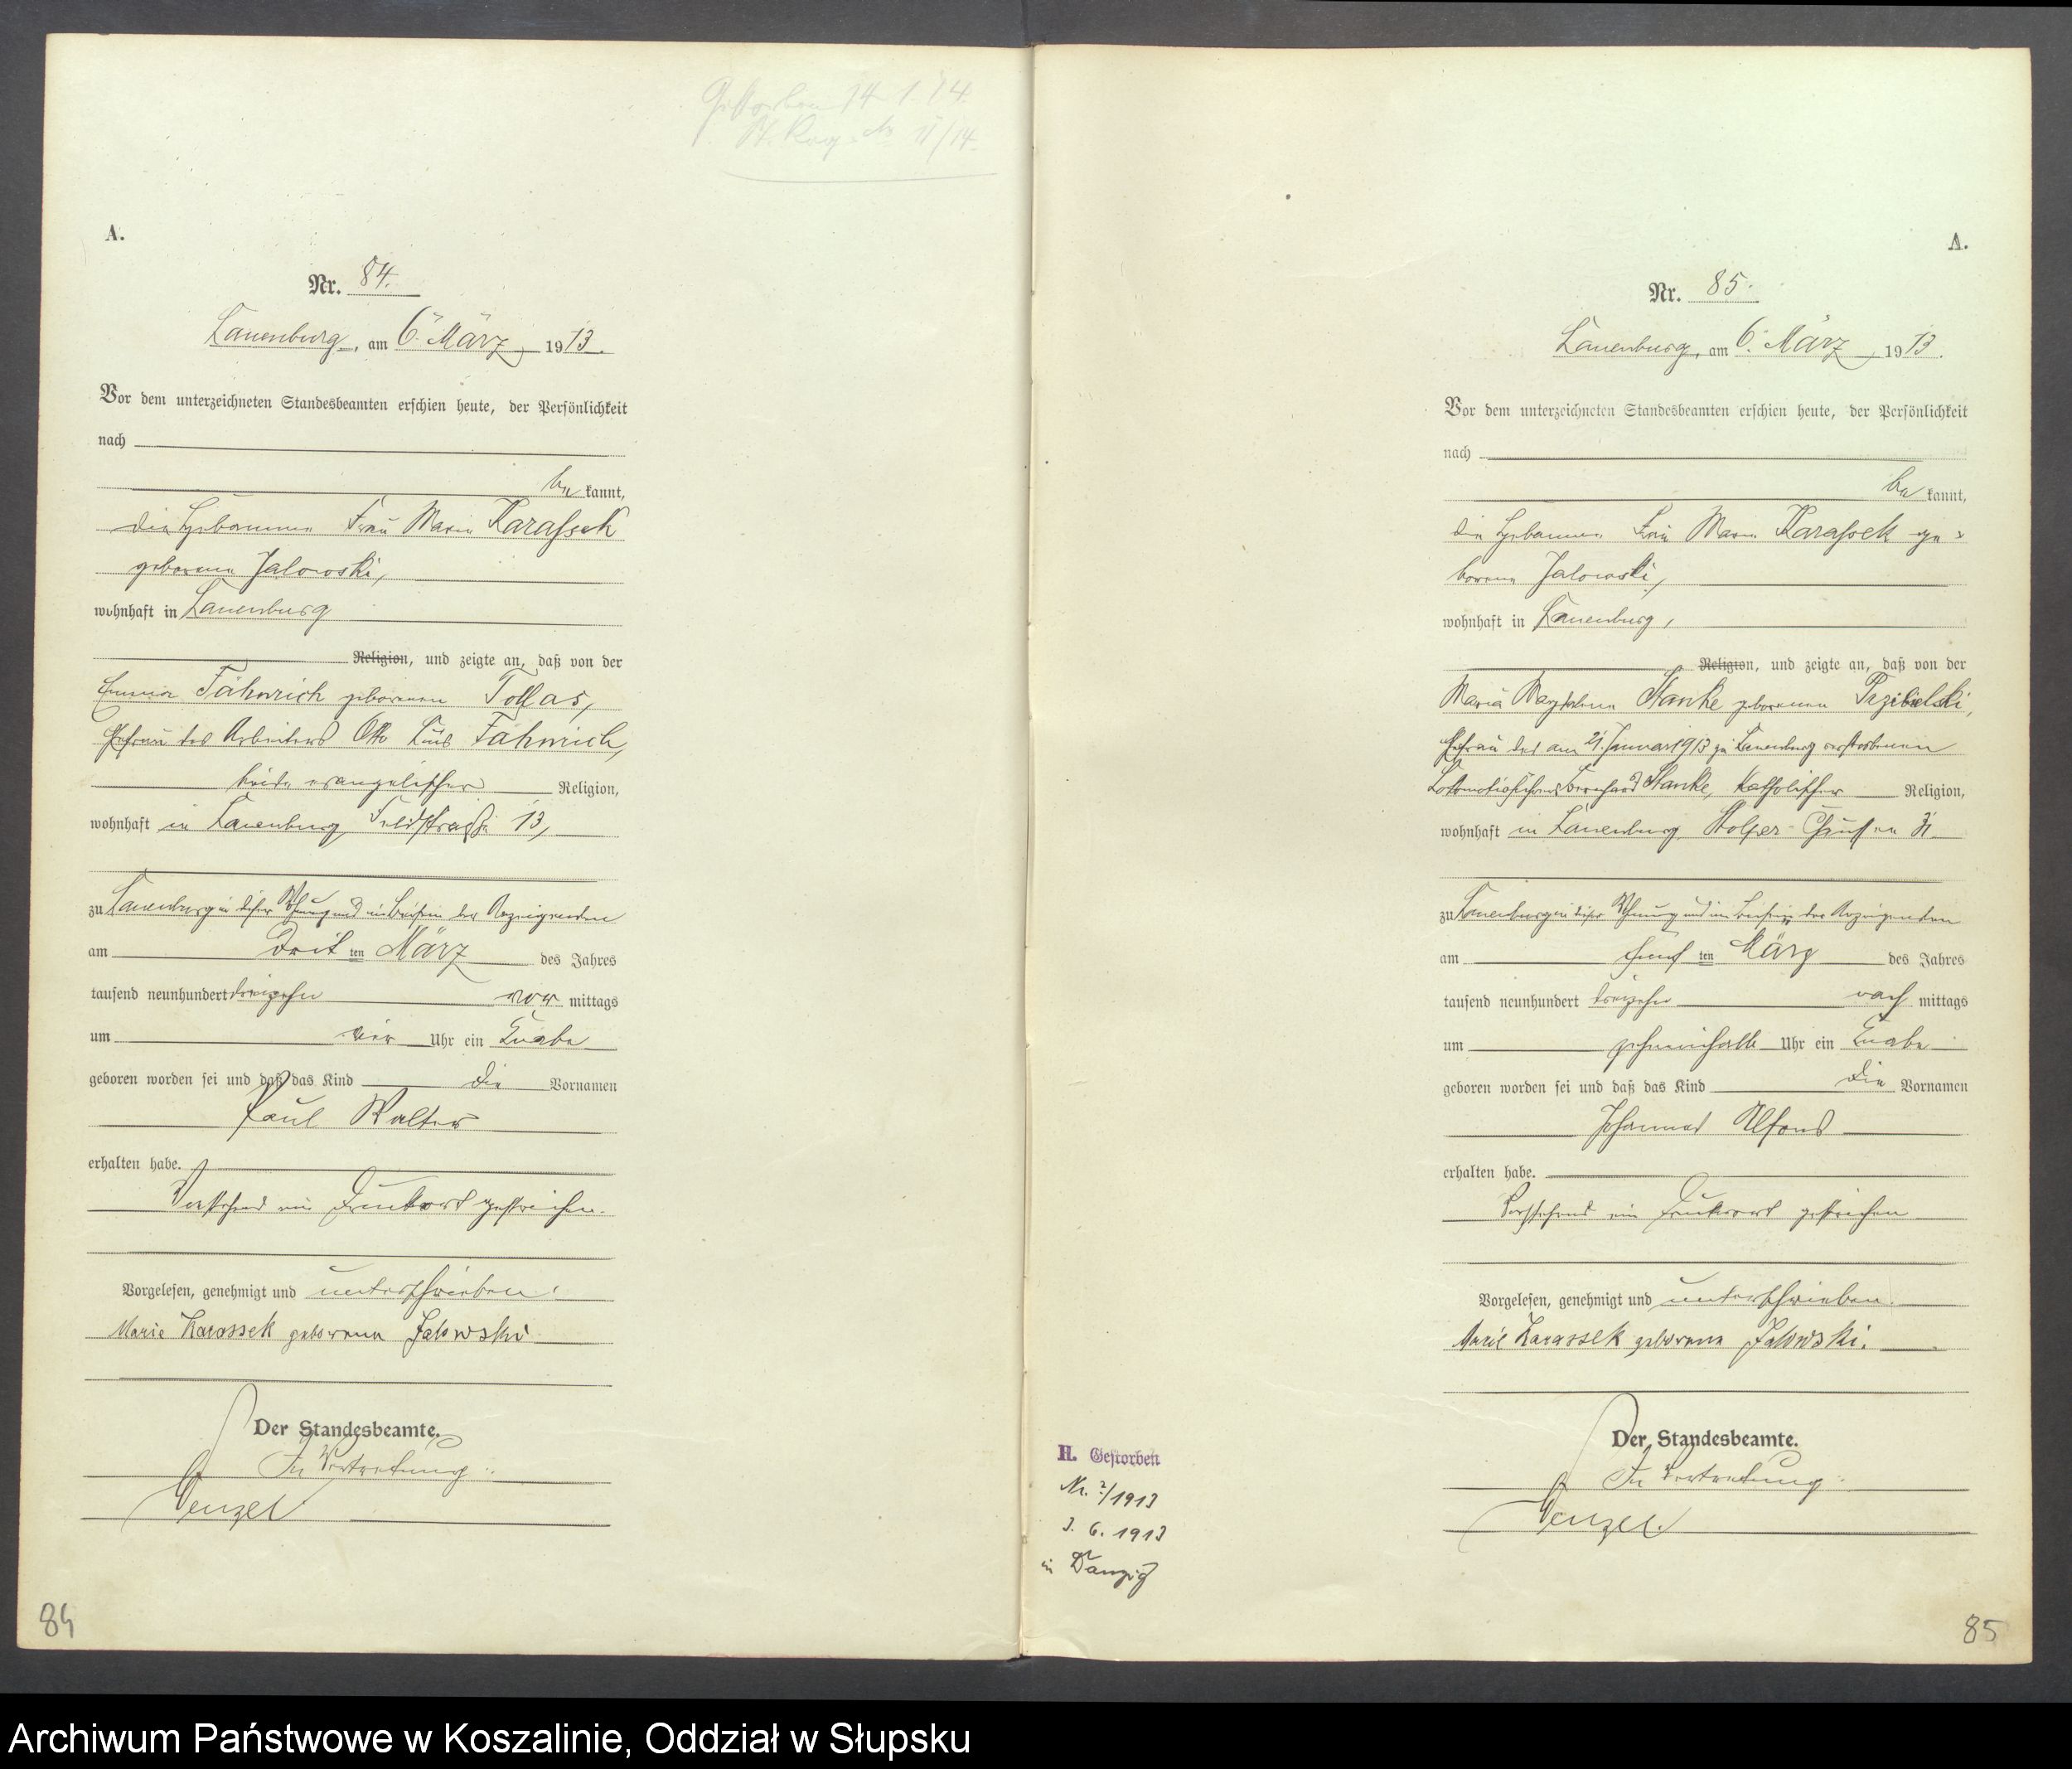 Gestorben 14.1.14.
St. Reg. No 11/14.
A.
Nr. 84.
Lauenburg, am 6. März 1913.
Vor dem unterzeichneten Standesbeamten erschien heute, der Persönlichkeit
nach
be kannt,
die Hebamme Frau Marie Karassek
geborene Jalowski,
wohnhaft in Lauenburg
Religion, und zeigte an, daß von der
Emma Fähnrich geborenen Tollas,
Ehefrau des Arbeiters Otto Fähnrich,
beide evangelischer Religion,
wohnhaft in Lauenburg, Feldstraße 13,
zu Lauenburg in dieser Wohnung und im Beisein der Anzeigenden
am drit ten März des Jahres
tausend neunhundert dreizehn vor mittags
um vier Uhr ein Knabe
geboren worden sei und daß das Kind die Vornamen
Paul Walter
erhalten habe.
Vorstehend ein Druckwort gestrichen.
Vorgelesen, genehmigt und unterschrieben.
Marie Karassek geborene Jalowski
Der Standesbeamte.
In Vertretung:
Wenzel
84
A.
Nr. 85.
Lauenburg, am 6. März 1913.
Vor dem unterzeichneten Standesbeamten erschien heute, der Persönlichkeit
nach
be kannt,
die Hebamme Frau Marie Karassek ge=
borene Jalowski,
wohnhaft in Lauenburg,
Religion, und zeigte an, daß von der
Maria Magdalena Stanke geborenen Przibielski,
Ehefrau des am 21. Januar 1913 zu Lauenburg verstorbenen
Lokomotivführers Bernhard Stanke, katholischer Religion,
wohnhaft in Lauenburg, Stolper-Chaussee
zu Lauenburg in dieser Wohnung und im Beisein der Anzeigenden
am fünf ten März des Jahres
tausend neunhundert dreizehn nach mittags
um zehneinhalb Uhr ein Knabe
geboren worden sei und daß das Kind die Vornamen
Johannes Alfons
erhalten habe.
Vorstehend ein Druckwort gestrichen
Vorgelesen, genehmigt und unterschrieben.
Marie Karassek geborene Jalowski.
Der Standesbeamte.
In Vertretung:
Wenzel.
H. Gestorben
Nr. ?/1913
3. 6. 1913
in Danzig
85
Archiwum Państwowe w Koszalinie, Oddział w Słupsku